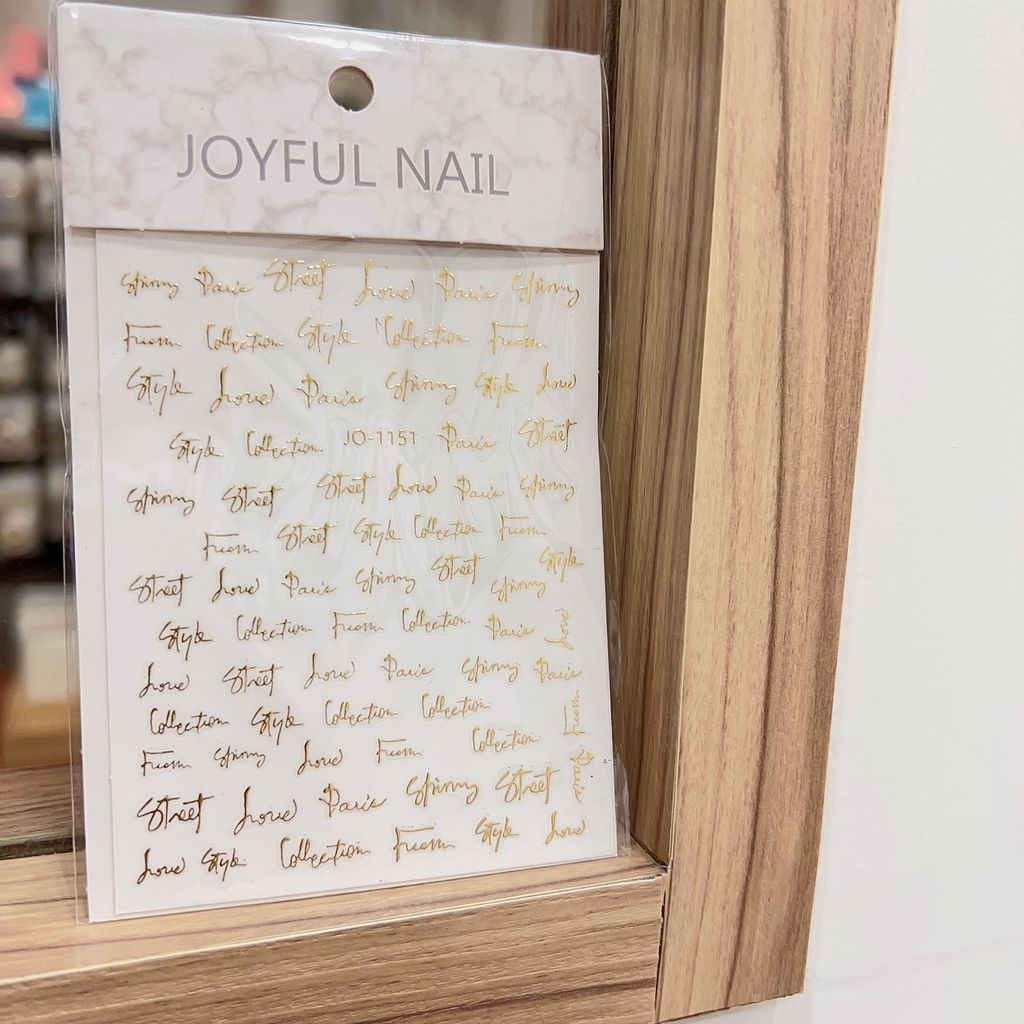 JOYFUL NAIL
Spinny Paris Street Love Paris Spinny
From Collection Style Collection From
Style Love Paris Spinny Style Love
Style Collection JO-1151 Paris Street
Spinny Street Street Love Paris Spinny
From Street Style Collection From
Street Love Paris Spinny Street Spinny Style
Style Collection From Collection Paris Love
Love Street Love Paris Spinny Paris
Collection Style Collection Collection From
From Spinny Love From Collection Paris
Street Love Paris Spinny Street
Love Style Collection From Style Love